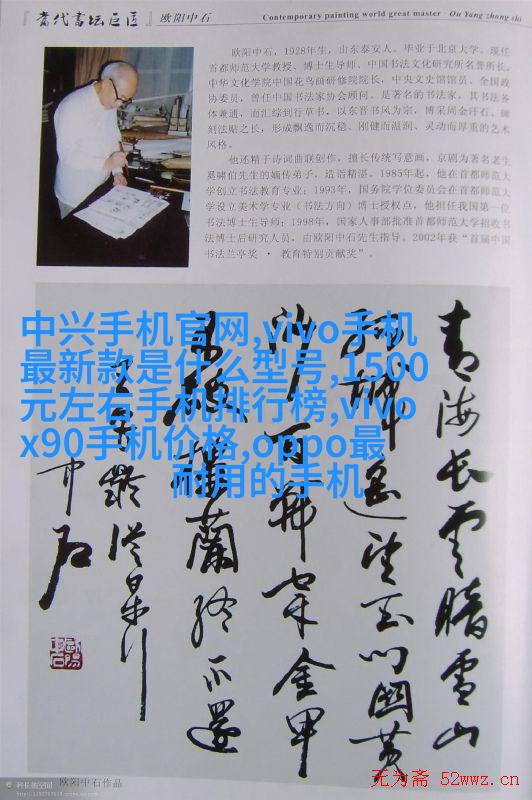 『当代书坛巨匠』欧阳中石
Contemporary painting world great master · Ou Yang zhong shi
欧阳中石，1928年生，山东泰安人。毕业于北京大学。现任
首都师范大学教授、博士生导师、中国书法文化研究所名誉所长，
中华文化学院中国花鸟画研修院院长，中央文史馆馆员、全国政
协委员，曾任中国书法家协会顾问。是著名的书法家，其书法各
体兼通，而汇综到行草书，以东晋书风为宗，博采周金汗石、碑
刻法贴之长，形成飘逸而沉稳、刚健而温润、灵动而厚重的艺术
风格。
他还精于诗词曲联创作，擅长传统写意画，京剧为著名老生
奚啸伯先生的嫡传弟子，造诣精湛。1985年起，他在首都师范大
学创立书法教育专业；1993年，国务院学位委员会在首都师范大
学设立美术学专业（书法方向）博士授权点，他担任我国第一位
书法博士生导师；1998年，国家人事部批准首都师范大学招收书
法博士后研究人员，由欧阳中石先生指导。2002年获“首届中国
书法兰亭奖 · 教育特别贡献奖”。
中兴手机官网,vivo手机
最新款是什么型号,1500
元左右手机排行榜,vivo
x90手机价格,oppo最
耐用的手机
青海长云暗雪山
孤城遥望玉门关黄
沙百战穿金甲
不破楼兰终不还
王昌龄从军行
中石
欧阳中石作品
无为斋 52wwz.cn